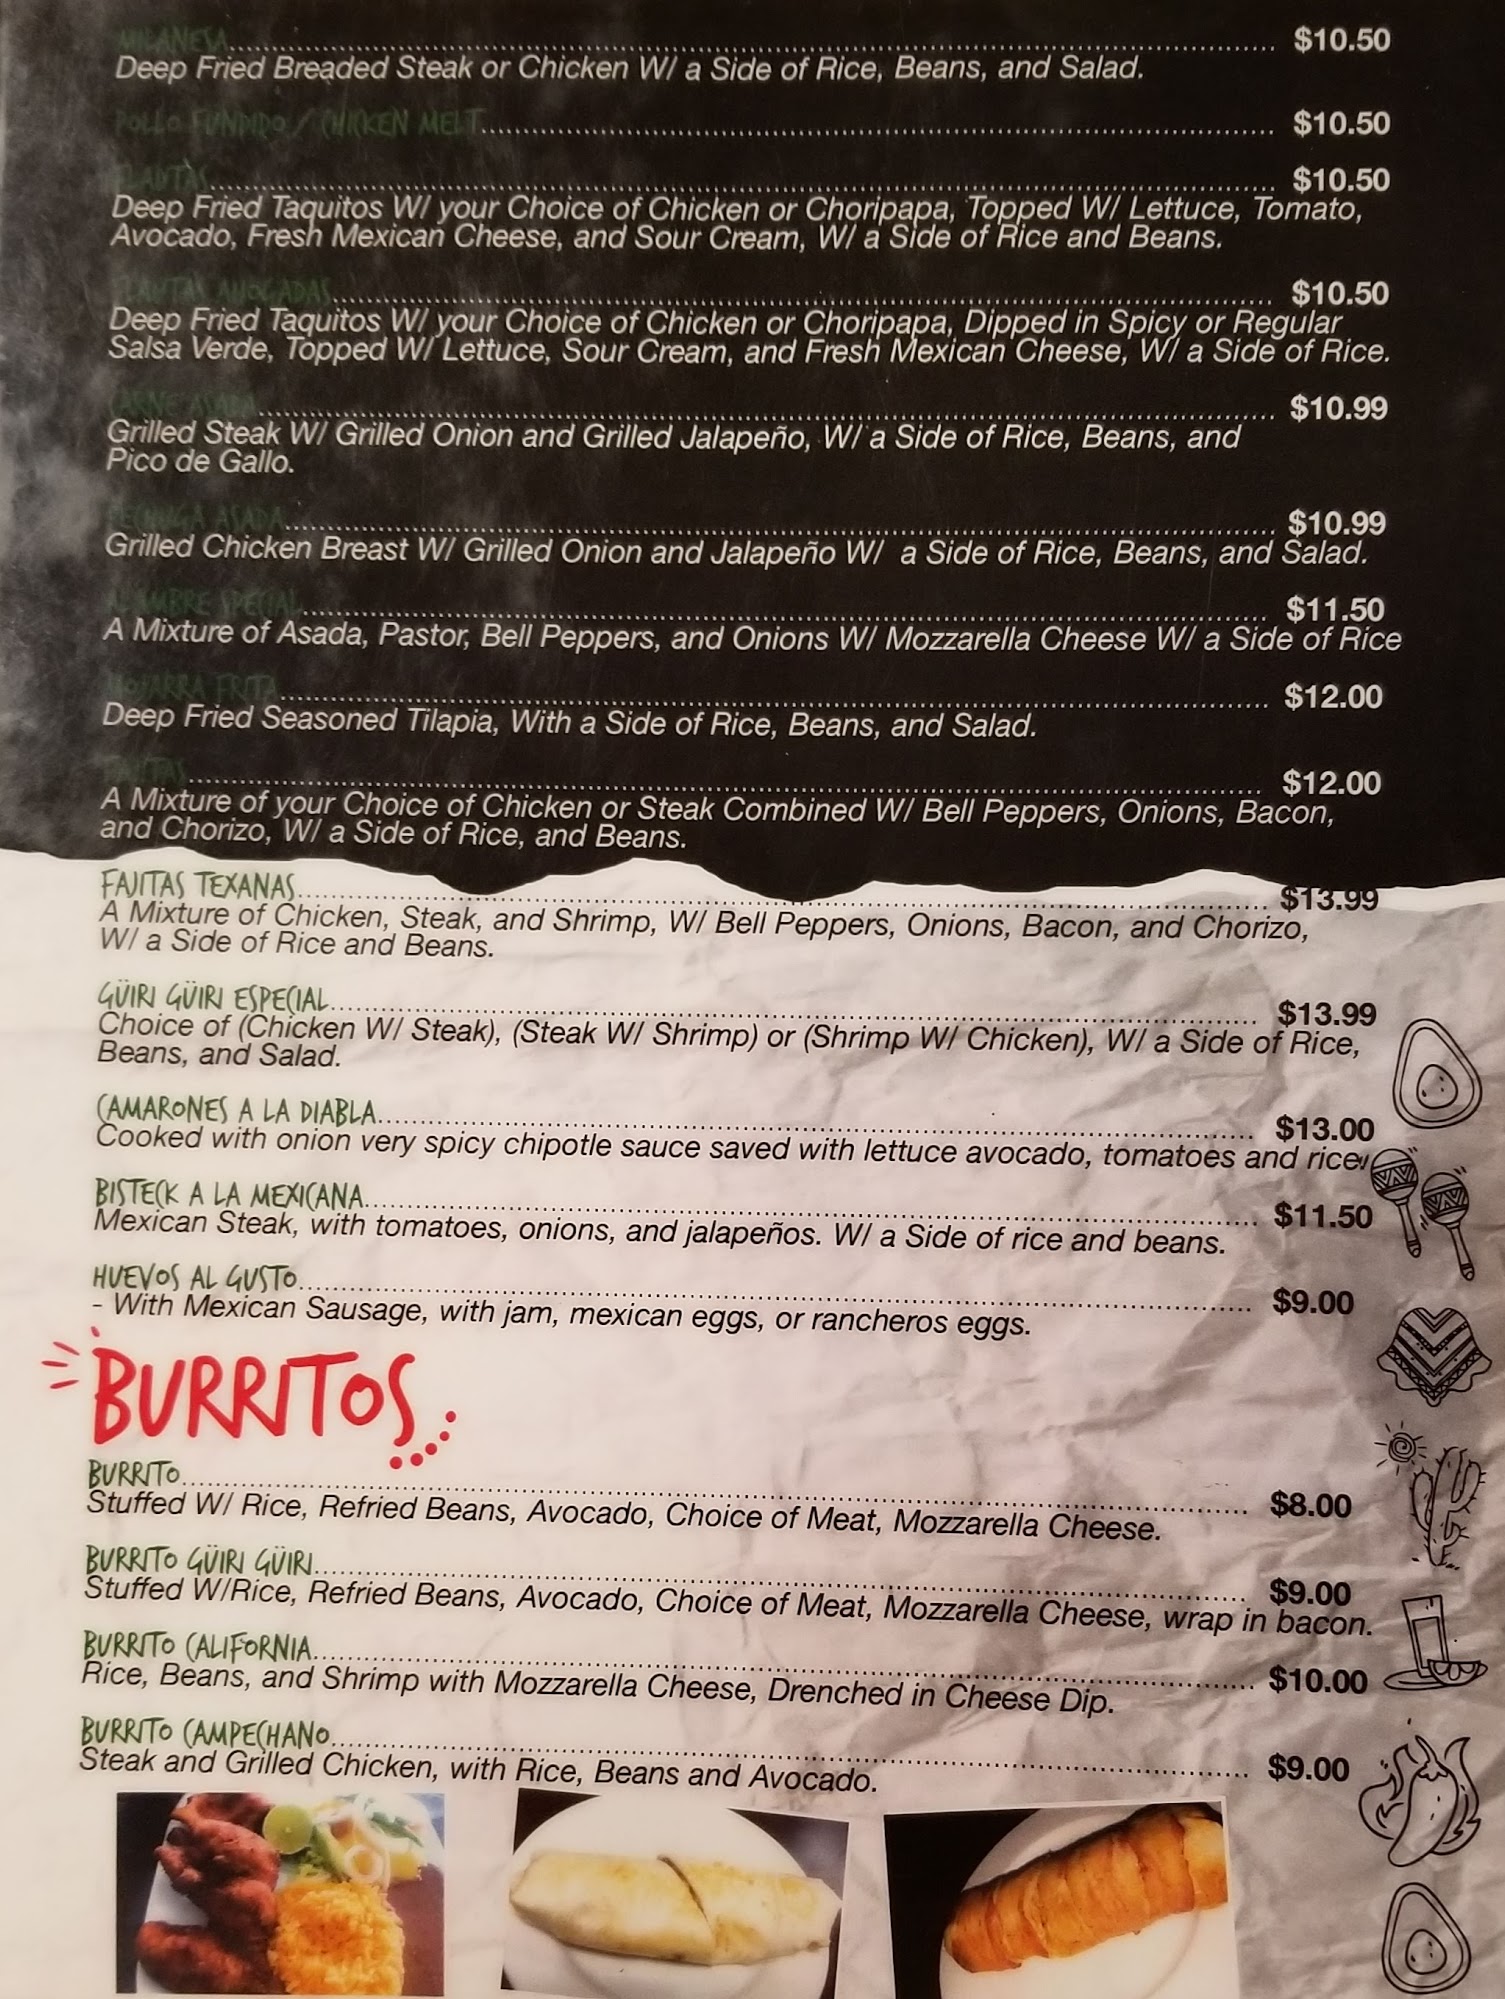 MILANESA........ $10.50
Deep Fried Breaded Steak or Chicken W/ a Side of Rice, Beans, and Salad.
POLLO FUNDIDO / CHICKEN MELT........ $10.50
FLAUTAS........ $10.50
Deep Fried Taquitos W/ your Choice of Chicken or Choripapa, Topped W/ Lettuce, Tomato,
Avocado, Fresh Mexican Cheese, and Sour Cream, W/ a Side of Rice and Beans.
FLAUTAS AHOGADAS........ $10.50
Deep Fried Taquitos W/ your Choice of Chicken or Choripapa, Dipped in Spicy or Regular
Salsa Verde, Topped W/ Lettuce, Sour Cream, and Fresh Mexican Cheese, W/ a Side of Rice.
CARNE ASADA........ $10.99
Grilled Steak W/ Grilled Onion and Grilled Jalapeño, W/ a Side of Rice, Beans, and
Pico de Gallo.
PECHUGA ASADA........ $10.99
Grilled Chicken Breast W/ Grilled Onion and Jalapeño W/ a Side of Rice, Beans, and Salad.
ALAMBRE SPECIAL........ $11.50
A Mixture of Asada, Pastor, Bell Peppers, and Onions W/ Mozzarella Cheese W/ a Side of Rice
MOJARRA FRITA........ $12.00
Deep Fried Seasoned Tilapia, With a Side of Rice, Beans, and Salad.
FAJITAS........ $12.00
A Mixture of your Choice of Chicken or Steak Combined W/ Bell Peppers, Onions, Bacon,
and Chorizo, W/ a Side of Rice, and Beans.
FAJITAS TEXANAS........ $13.99
A Mixture of Chicken, Steak, and Shrimp, W/ Bell Peppers, Onions, Bacon, and Chorizo,
W/ a Side of Rice and Beans.
GÜIRI GÜIRI ESPECIAL........ $13.99
Choice of (Chicken W/ Steak), (Steak W/ Shrimp) or (Shrimp W/ Chicken), W/ a Side of Rice,
Beans, and Salad.
CAMARONES A LA DIABLA........ $13.00
Cooked with onion very spicy chipotle sauce saved with lettuce avocado, tomatoes and rice
BISTECK A LA MEXICANA........ $11.50
Mexican Steak, with tomatoes, onions, and jalapeños. W/ a Side of rice and beans.
HUEVOS AL GUSTO........ $9.00
- With Mexican Sausage, with jam, mexican eggs, or rancheros eggs.
BURRITOS
BURRITO........ $8.00
Stuffed W/ Rice, Refried Beans, Avocado, Choice of Meat, Mozzarella Cheese.
BURRITO GÜIRI GÜIRI........ $9.00
Stuffed W/Rice, Refried Beans, Avocado, Choice of Meat, Mozzarella Cheese, wrap in bacon.
BURRITO CALIFORNIA........ $10.00
Rice, Beans, and Shrimp with Mozzarella Cheese, Drenched in Cheese Dip.
BURRITO CAMPECHANO........ $9.00
Steak and Grilled Chicken, with Rice, Beans and Avocado.